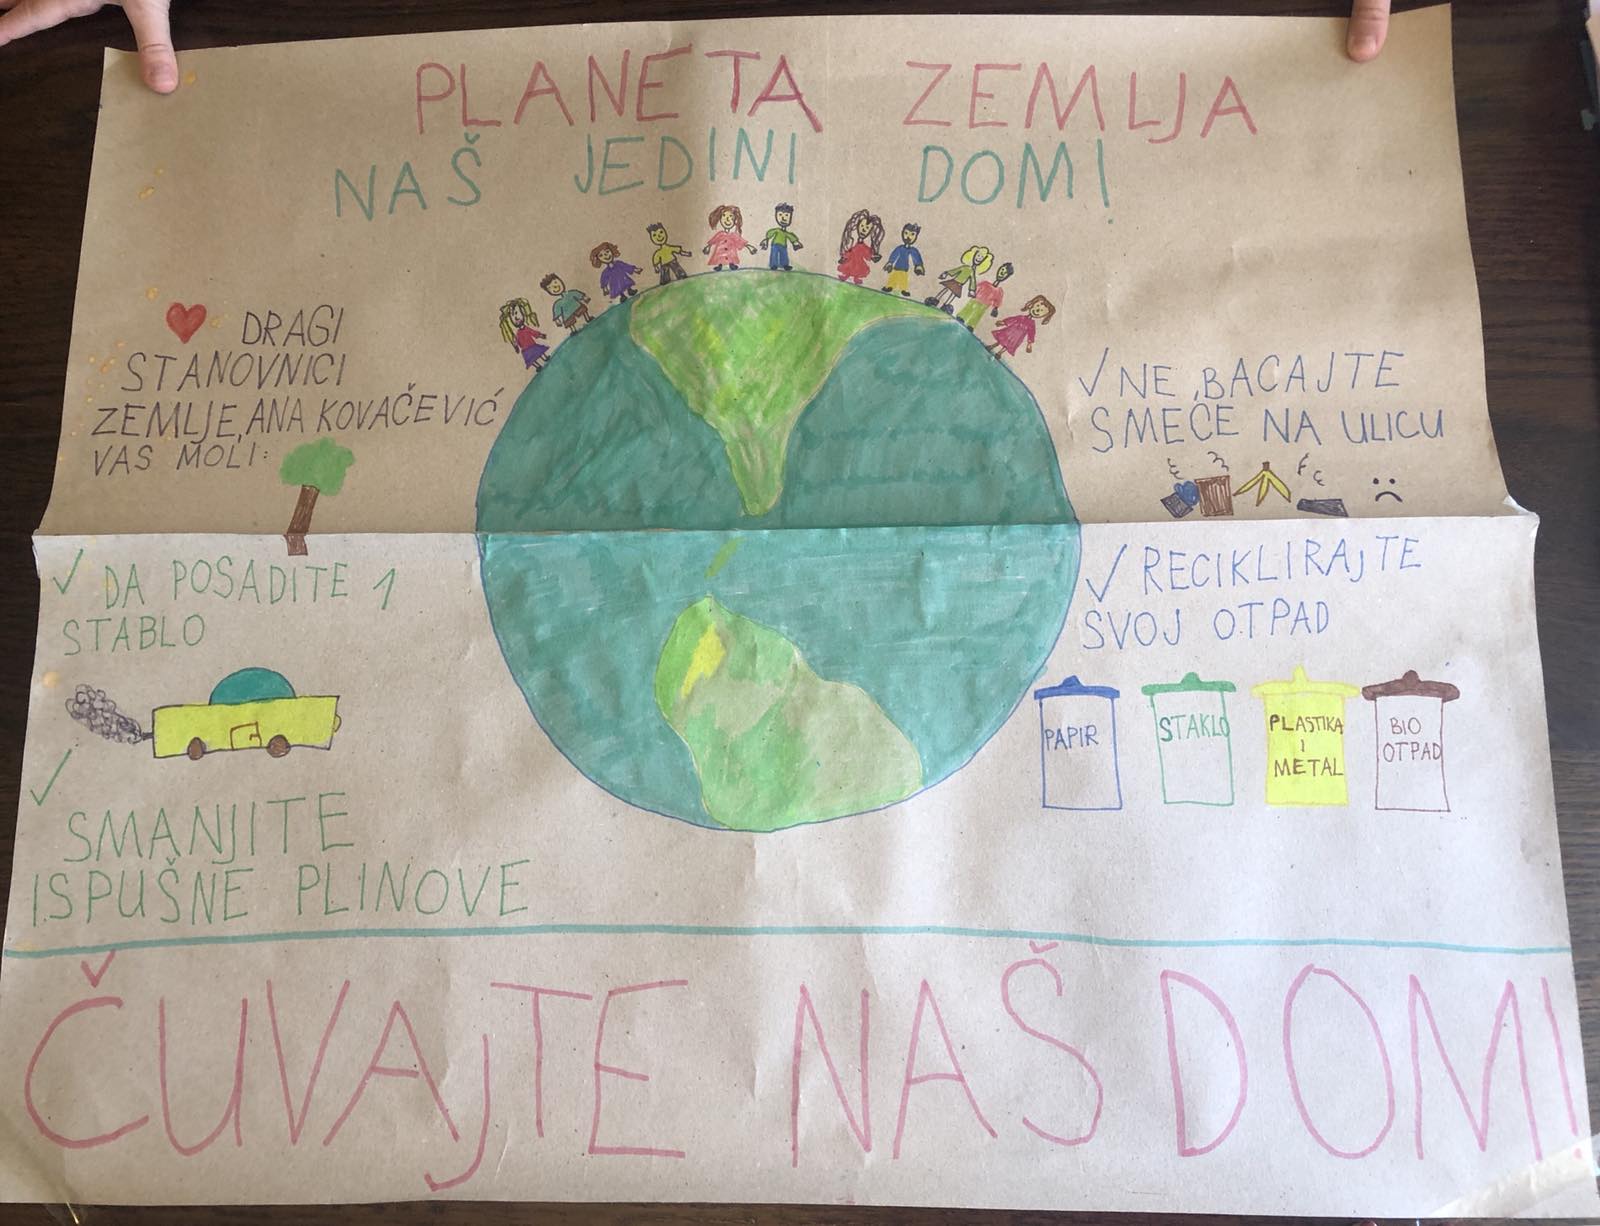 PLANETA ZEMLJA
NAŠ JEDINI DOM!
DRAGI
STANOVNICI
ZEMLJE, ANA KOVAČEVIĆ
VAS MOLI:
✓ DA POSADITE 1
STABLO
✓
SMANJITE
ISPUŠNE PLINOVE
✓ NE BACAJTE
SMEĆE NA ULICU
✓ RECIKLIRAJTE
SVOJ OTPAD
PAPIR
STAKLO
PLASTIKA
I
METAL
BIO
OTPAD
ČUVAJTE NAŠ DOM!